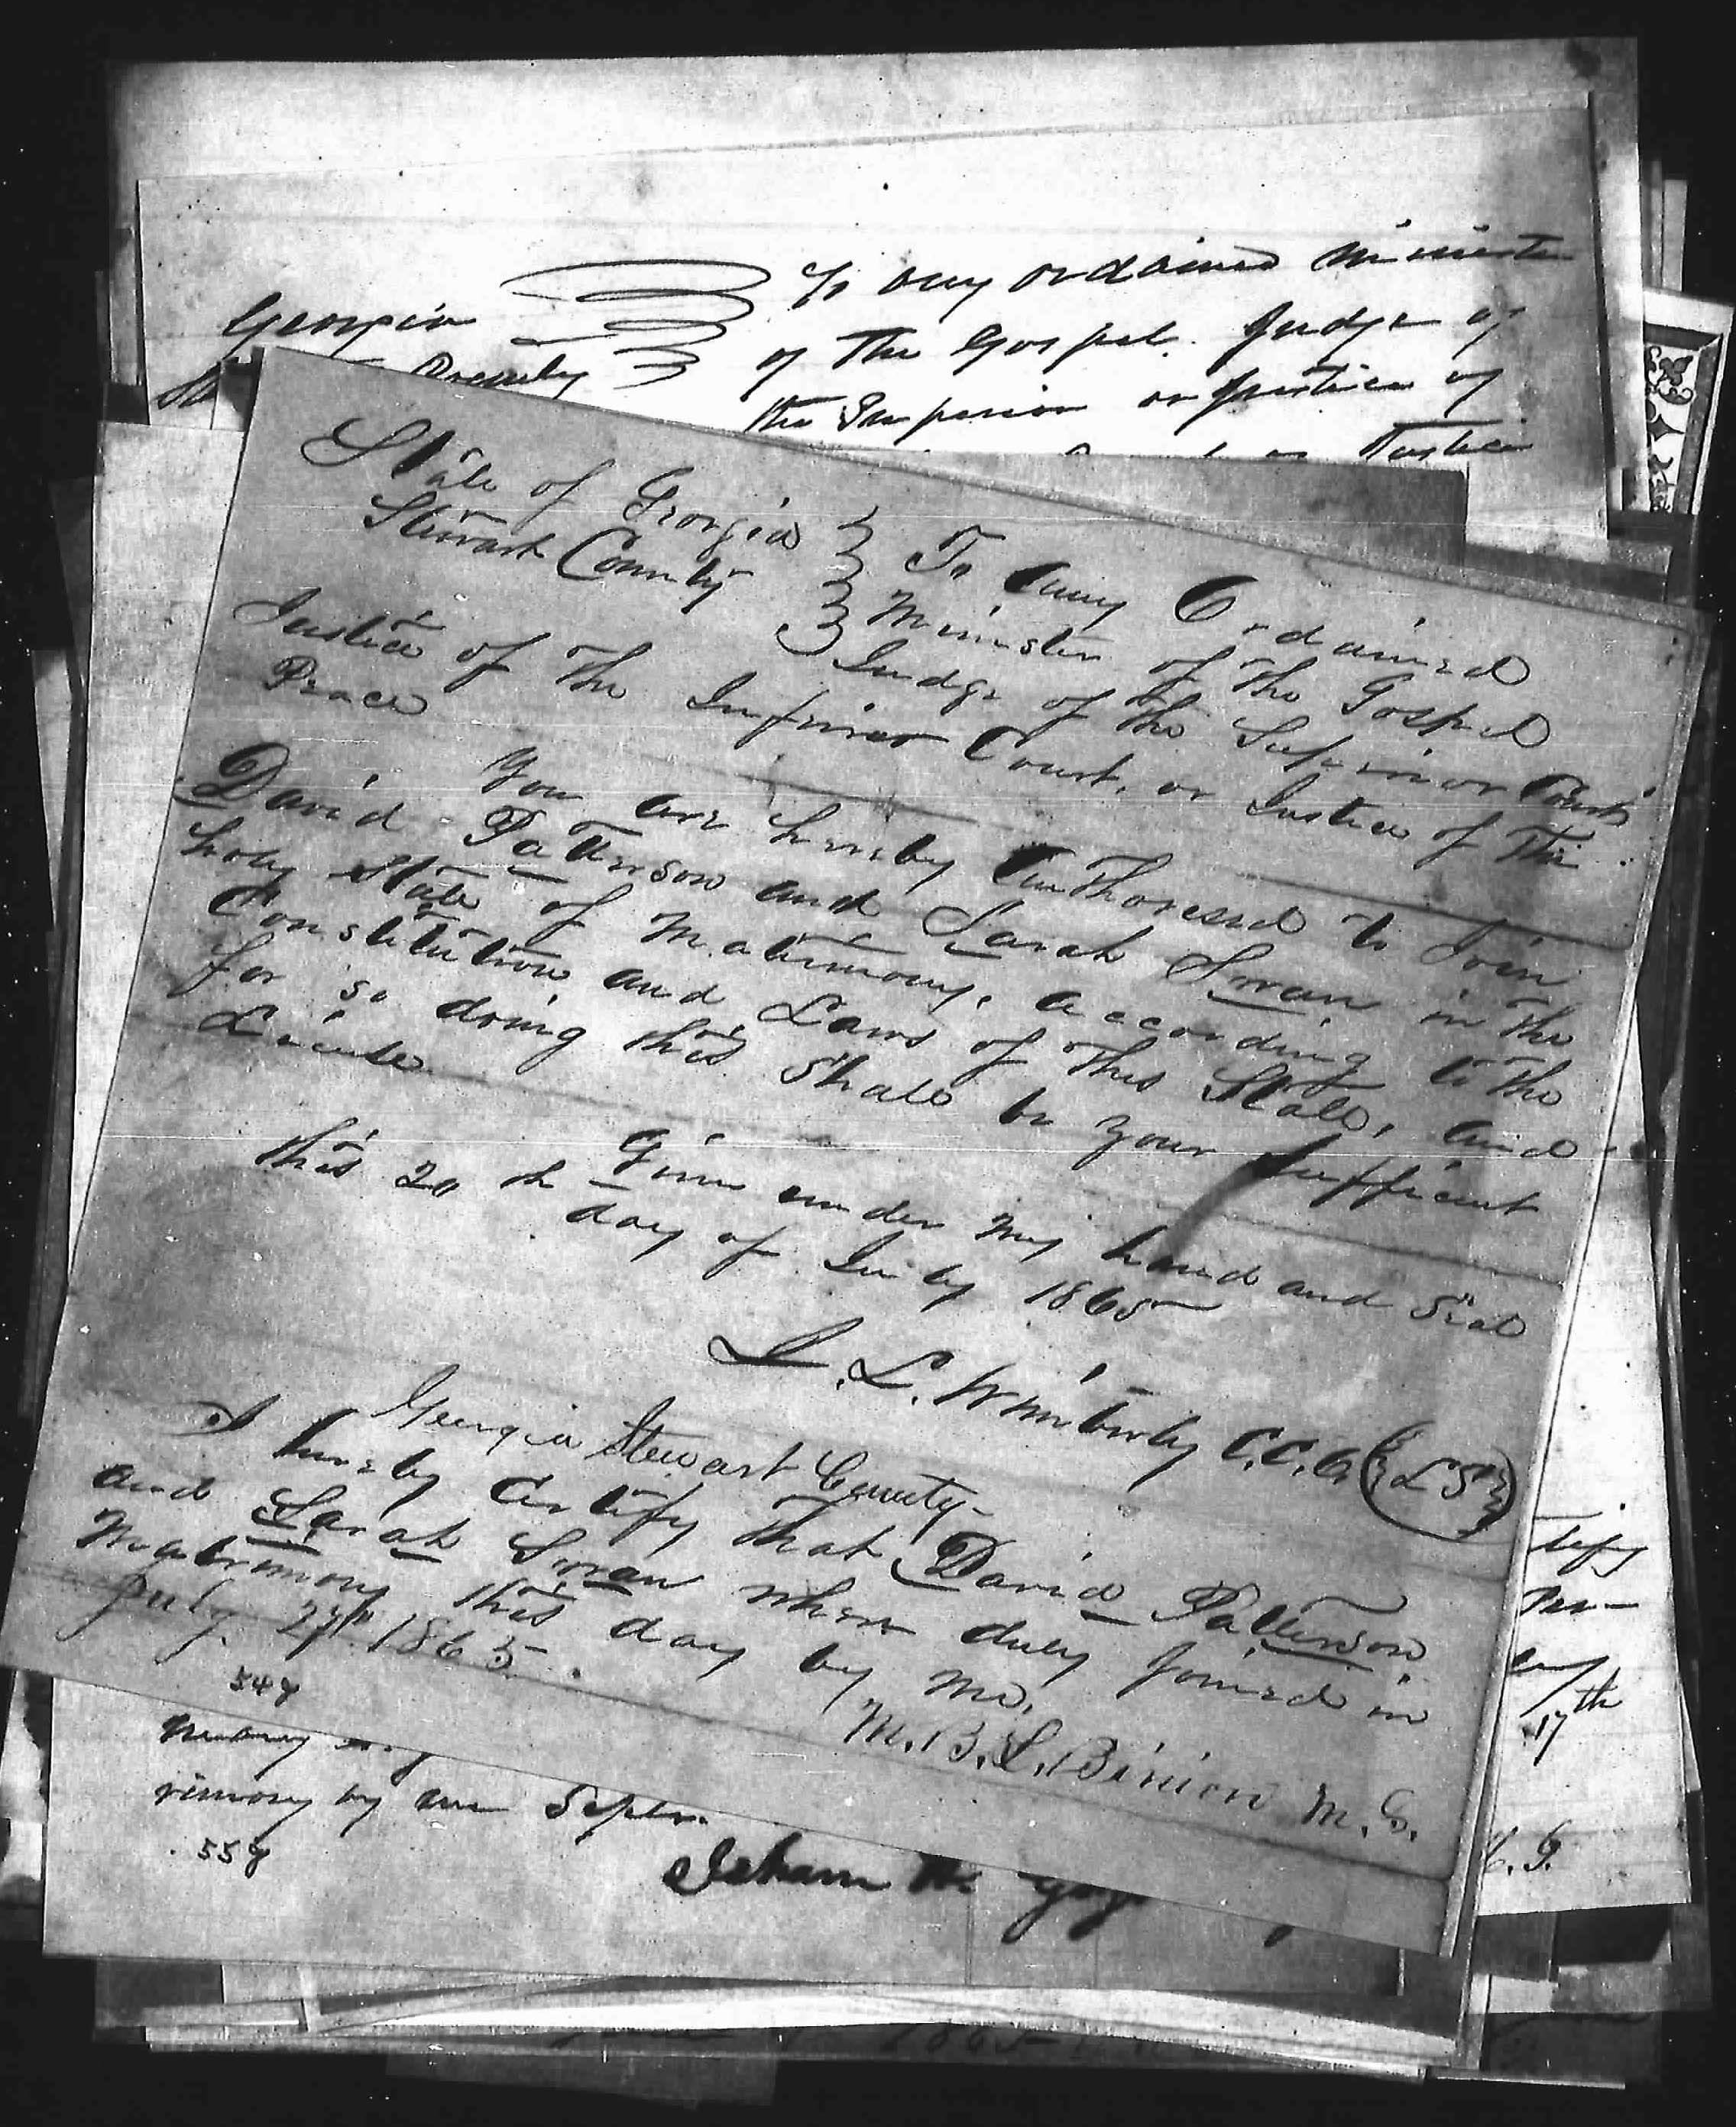 To any ordained minister
Georgia of the Gospel. Judge of
County the Superior or Justice of
Justice
State of Georgia } To any Ordained
Stewart County } Minister of the Gospel
Judge of the Superior Court
Justice of the Inferior Court, or Justice of the
Peace
You are hereby authoresed to Join
David Patterson and Sarah Swan in the
holy State of Matrimony, according to the
Constitution and Laws of this State, and
for so doing this Shall be your Sufficient
License
Given under my hand and Seal
this 20th day of July 1865
L. Wimberly C.C.O. (L S)
Georgia Stewart County-
I hereby Certify that David Patterson
and Sarah Swan when duly joined in
Matrimony this day by me,
July 27th 1865.
M. B. L. Binion M. G.
548
rimony by me Septr.
558
Isham
tify
17th
G.